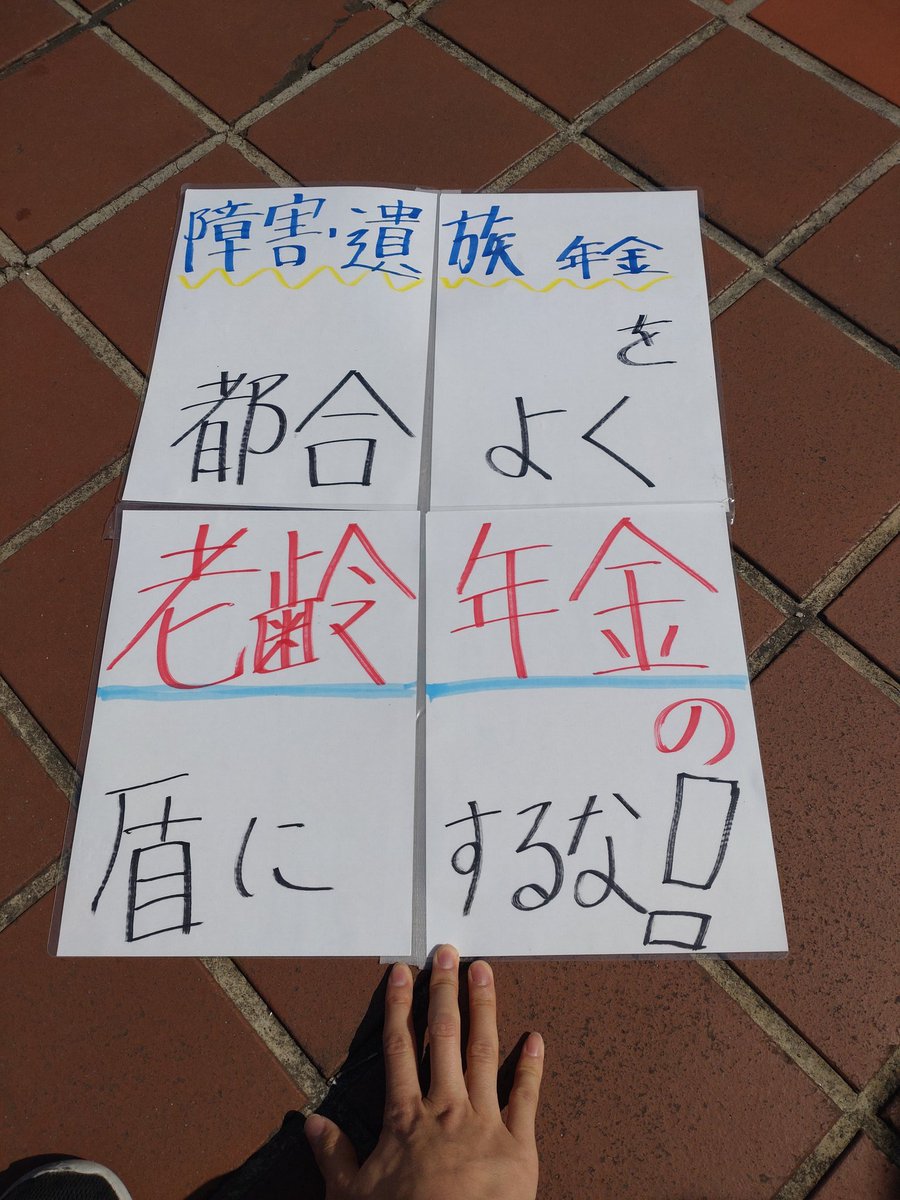 障害・遺族年金
を
都合よく
老齢年金
の
盾にするな!